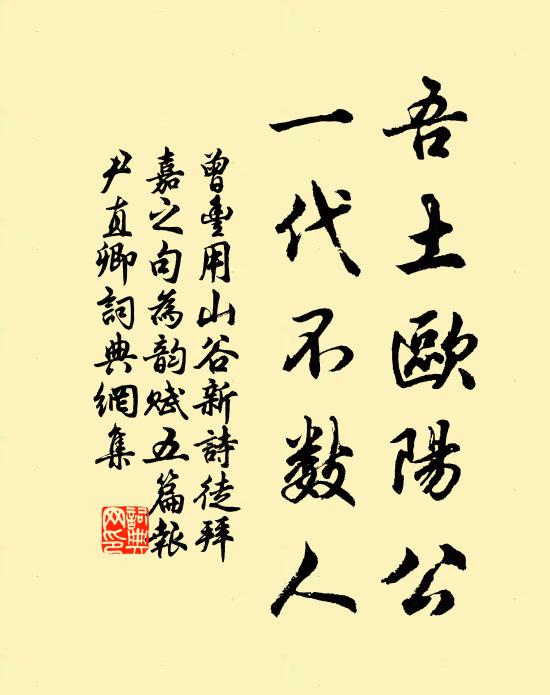 吾土歐陽公
一代不數人
曾豐用山谷新詩徒拜
嘉之句為韵赋五篇報
尹直卿詞典網集
詞典
网印